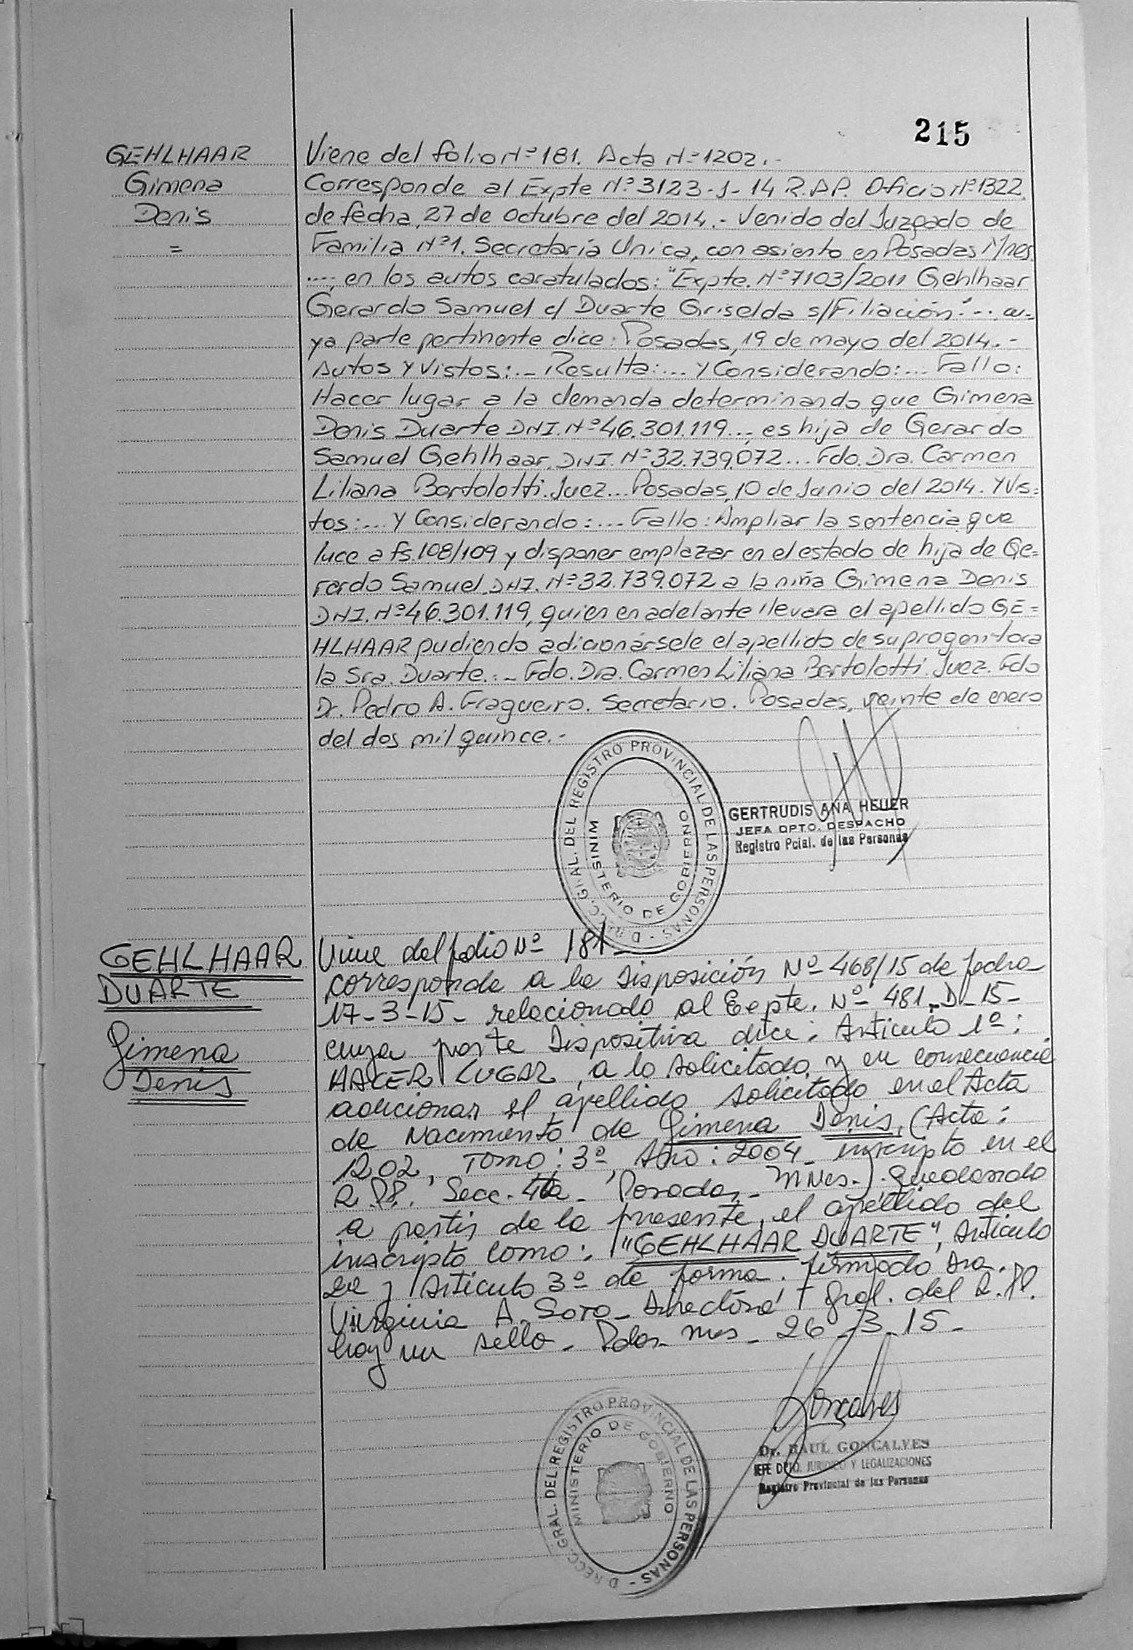 215
GEHLHAAR
Gimena
Denis
=
Viene del folio Nº 181. Acta Nº 1202.-
Corresponde al Expte Nº 3123-J-14 R.P.P. Oficio Nº 1322
de fecha, 27 de Octubre del 2014.- Venido del Juzgado de
Familia Nº 1. Secretaría Unica, con asiento en Posadas Mnes
..., en los autos caratulados: "Expte. Nº 7103/2011 Gehlhaar
Gerardo Samuel c/ Duarte Griselda s/Filiación"... cu-
ya parte pertinente dice: Posadas, 19 de mayo del 2014.-
Autos y Vistos:... Resulta:... y Considerando:... Fallo:
Hacer lugar a la demanda determinando que Gimena
Denis Duarte DNI. Nº 46.301.119..., es hija de Gerardo
Samuel Gehlhaar, DNI. Nº 32.739.072... Fdo. Dra. Carmen
Liliana Bortolotti. Juez... Posadas, 10 de Junio del 2014. Y Vis=
tos:... y Considerando:... Fallo: Ampliar la sentencia que
luce a fs. 108/109 y disponer emplazar en el estado de hija de Ge=
rardo Samuel DNI. Nº 32.739.072 a la niña Gimena Denis
DNI. Nº 46.301.119, quien en adelante llevara el apellido GE=
HLHAAR pudiendo adicionársele el apellido de su progenitora
la Sra. Duarte.:- Fdo. Dra. Carmen Liliana Bortolotti. Juez. Fdo
Dr. Pedro A. Fragueiro. Secretario. Posadas, veinte de enero
del dos mil quince.-
DIRECC. GRAL. DEL REGISTRO PROVINCIAL DE LAS PERSONAS -
MINISTERIO DE GOBIERNO
GERTRUDIS ANA HEUER
JEFA DPTO. DESPACHO
Registro Pcial. de las Personas
GEHLHAAR
DUARTE
Gimena
Denis
Viene del folio Nº 181-
corresponde a la Disposición Nº 468/15 de fecha
17-3-15- relacionado al Expte. Nº 481-D-15-
cuya parte Dispositiva dice: Articulo 1º:
HACER LUGAR, a lo solicitado, y en consecuencia
adicionar el apellido solicitado en el Acta
de Nacimiento de Gimena Denis, (Acta:
1202, Tomo: 3º, Año: 2004- inscripto en el
R.P.P. Secc. 4ta- Posadas- Mnes.) quedando
a partir de la presente, el apellido del
inscripto como: "GEHLHAAR DUARTE", Articulo
2º y Articulo 3º de forma. firmado Dra.
Virginia A. Soto- Directora Gral. del R.P.P.
hay un sello- Pdas- Mnes- 26-3-15-
DIRECC. GRAL. DEL REGISTRO PROVINCIAL DE LAS PERSONAS -
MINISTERIO DE GOBIERNO
Goncalves
Dr. RAUL GONCALVES
JEFE DPTO. JURIDICO Y LEGALIZACIONES
Registro Provincial de las Personas